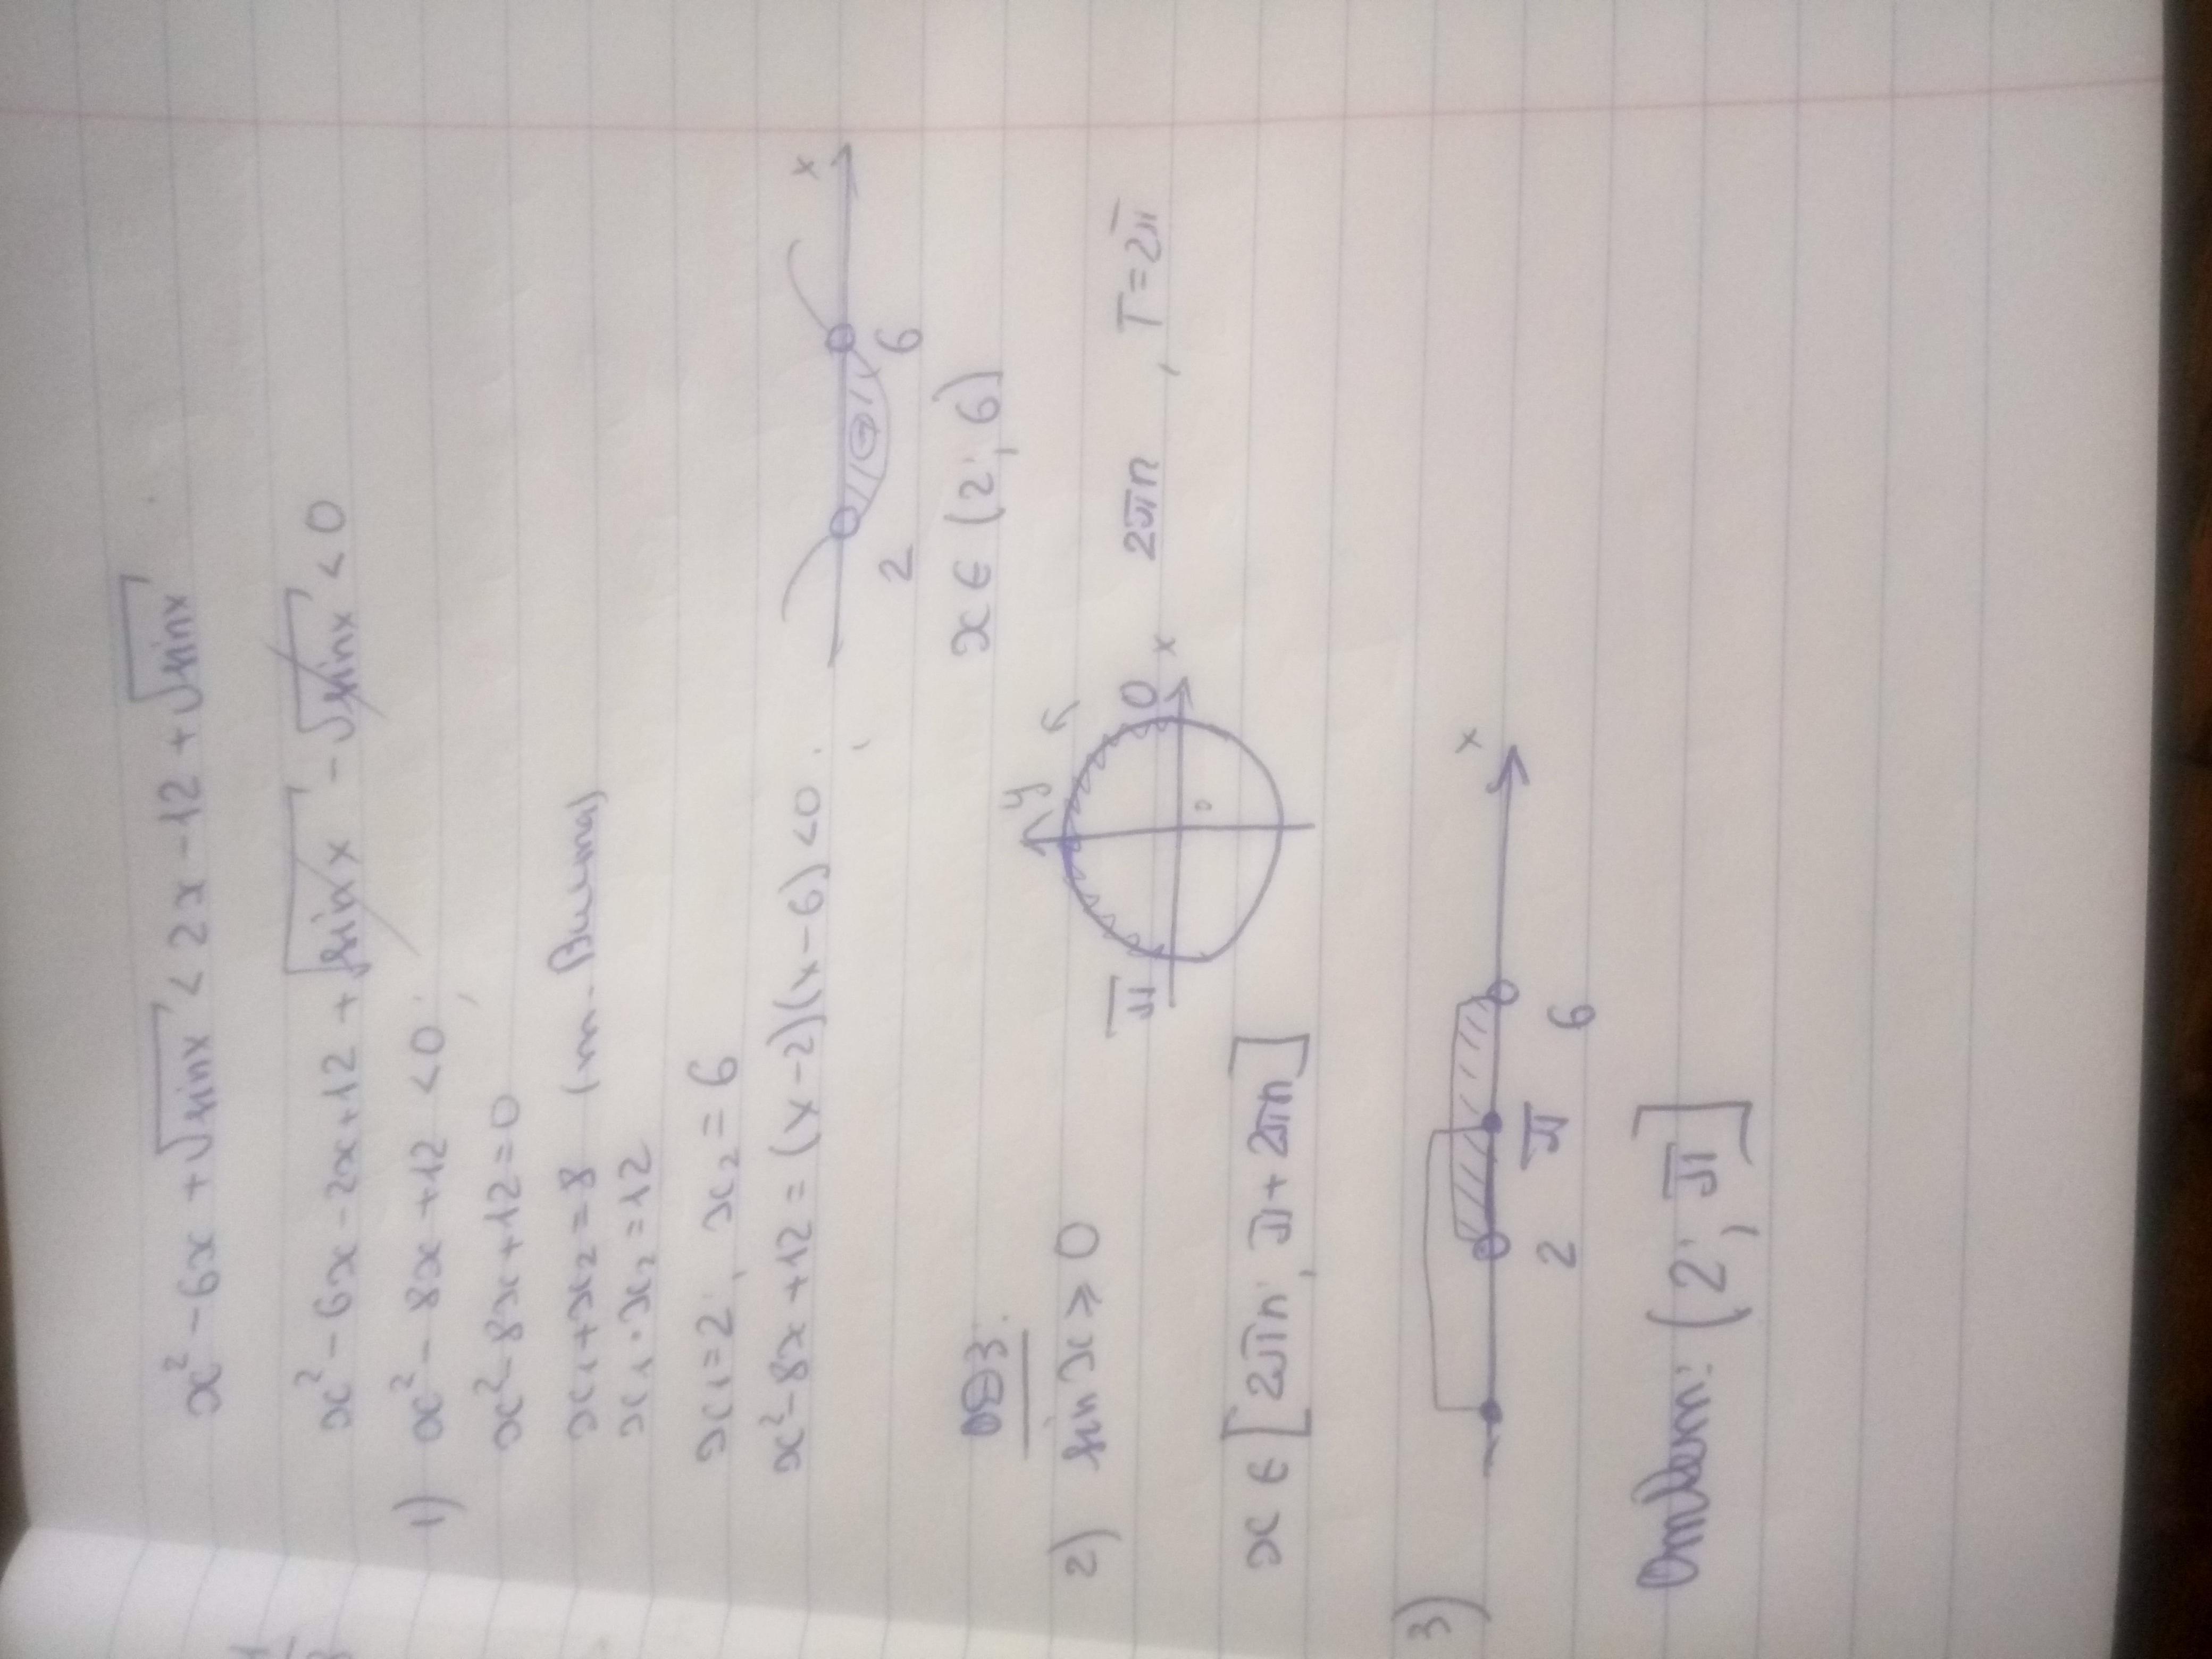 x² - 6x + √sinx < 2x - 12 + √sinx
x² - 6x - 2x + 12 + √sinx - √sinx < 0
1) x² - 8x + 12 < 0;
x² - 8x + 12 = 0
x₁ + x₂ = 8 (т. Виета)
x₁ · x₂ = 12
x₁ = 2; x₂ = 6
x² - 8x + 12 = (x - 2)(x - 6) < 0;
x
2 6
x ∈ (2; 6)
ОДЗ:
2) sin x ⩾ 0
y
π 0 x
0
2πn, T = 2π
x ∈ [2πn; π + 2πn]
3)
x
2 π 6
Ответ: (2; π]